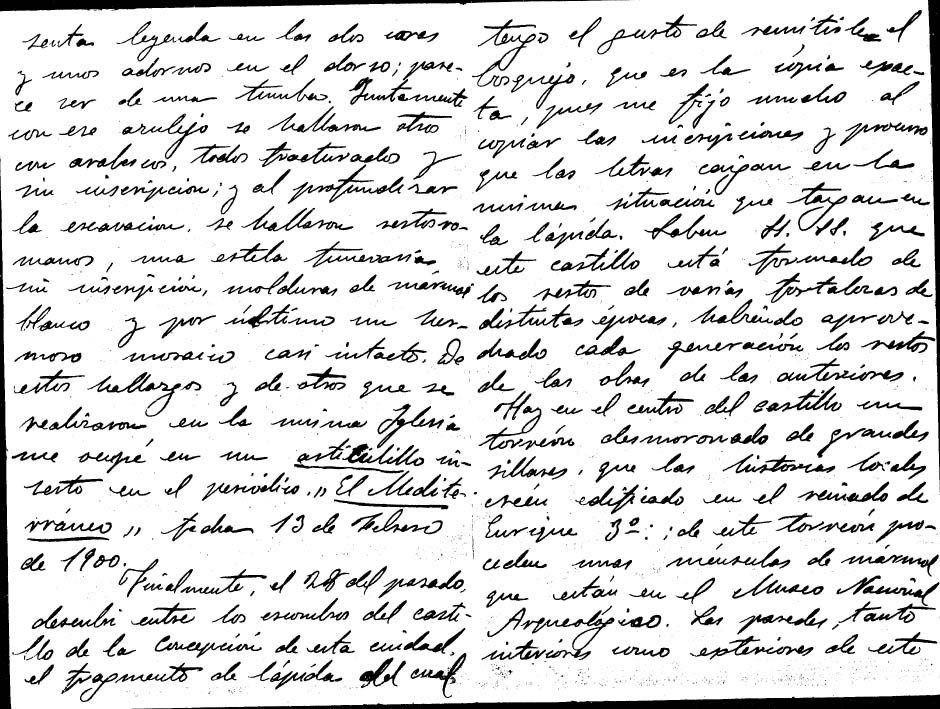 senta leyenda en las dos caras
y unos adornos en el dorso; pare-
ce ser de una tumba. Juntamente
con ese azulejo se hallaron otros
con arabescos, todos fracturados y
sin inscripcion; y al profundizar
la escavacion, se hallaron restos ro-
manos, una estela funeraria
sin inscripción, molduras de mármol
blanco y por último un her-
moso mosaico casi intacto. De
estos hallazgos y de otros que se
realizaron en la misma Iglesia
me ocupé en un articulillo in-
serto en el periódico „El Medite-
rráneo„ fecha 13 de Febrero
de 1900.
Finalmente, el 28 del pasado,
descubri entre los escombros del casti-
llo de la Concepción de esta ciudad,
el fragmento de lápida del cual
tengo el gusto de remitirle el
bosquejo, que es la copia exac-
ta, pues me fijo mucho al
copiar las inscripciones y procuro
que las letras caigan en la
misma situación que tengan en
la lápida. Saben SS. SS. que
este castillo está formado de
los restos de varias fortalezas de
distintas épocas, habiendo aprove-
chado cada generación los restos
de las obras de las anteriores.
Hay en el centro del castillo un
torreón desmoronado de grandes
sillares, que las historias locales
creén edificado en el reinado de
Enrique 3º: ; de este torreón pro-
ceden unas ménsulas de mármol
que están en el Museo Nacional
Arqueológico. Las paredes, tanto
interiores como exteriores de este